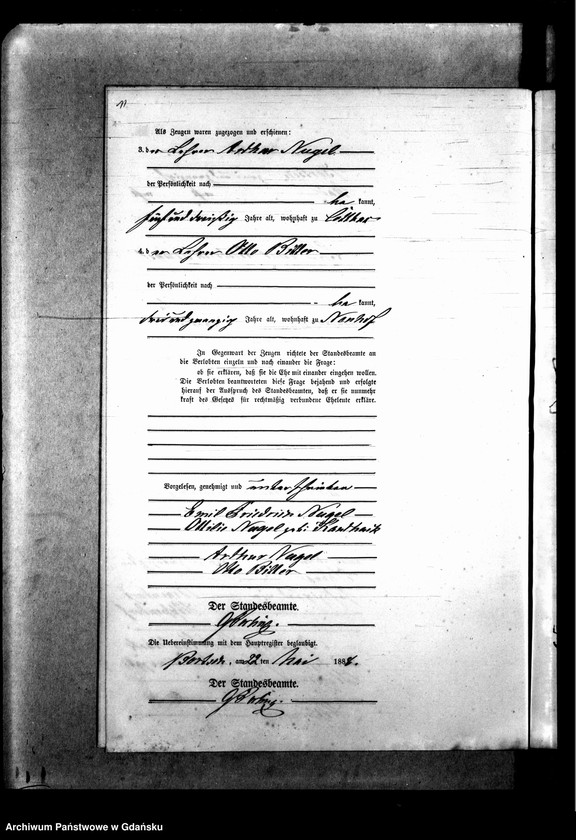 Als Zeugen waren zugezogen und erschienen:
3. der Lehrer Arthur Nagel
der Persönlichkeit nach
bekannt,
fünfunddreißig Jahre alt, wohnhaft zu
4. der Lehrer Otto Biller
der Persönlichkeit nach
bekannt,
dreiundzwanzig Jahre alt, wohnhaft zu Neuhof
In Gegenwart der Zeugen richtete der Standesbeamte an
die Verlobten einzeln und nach einander die Frage:
ob sie erklären, daß sie die Ehe mit einander eingehen wollen.
Die Verlobten beantworteten diese Frage bejahend und erfolgte
hierauf der Ausspruch des Standesbeamten, daß er sie nunmehr
kraft des Gesetzes für rechtmäßig verbundene Eheleute erkläre.
Vorgelesen, genehmigt und unterschrieben
Emil Friedrich Nagel
Ottilie Nagel geb.
Arthur Nagel
Otto Biller
Der Standesbeamte.
Die Uebereinstimmung mit dem Hauptregister beglaubigt.
am 22 ten Mai 188
Der Standesbeamte.
Archiwum Państwowe w Gdańsku